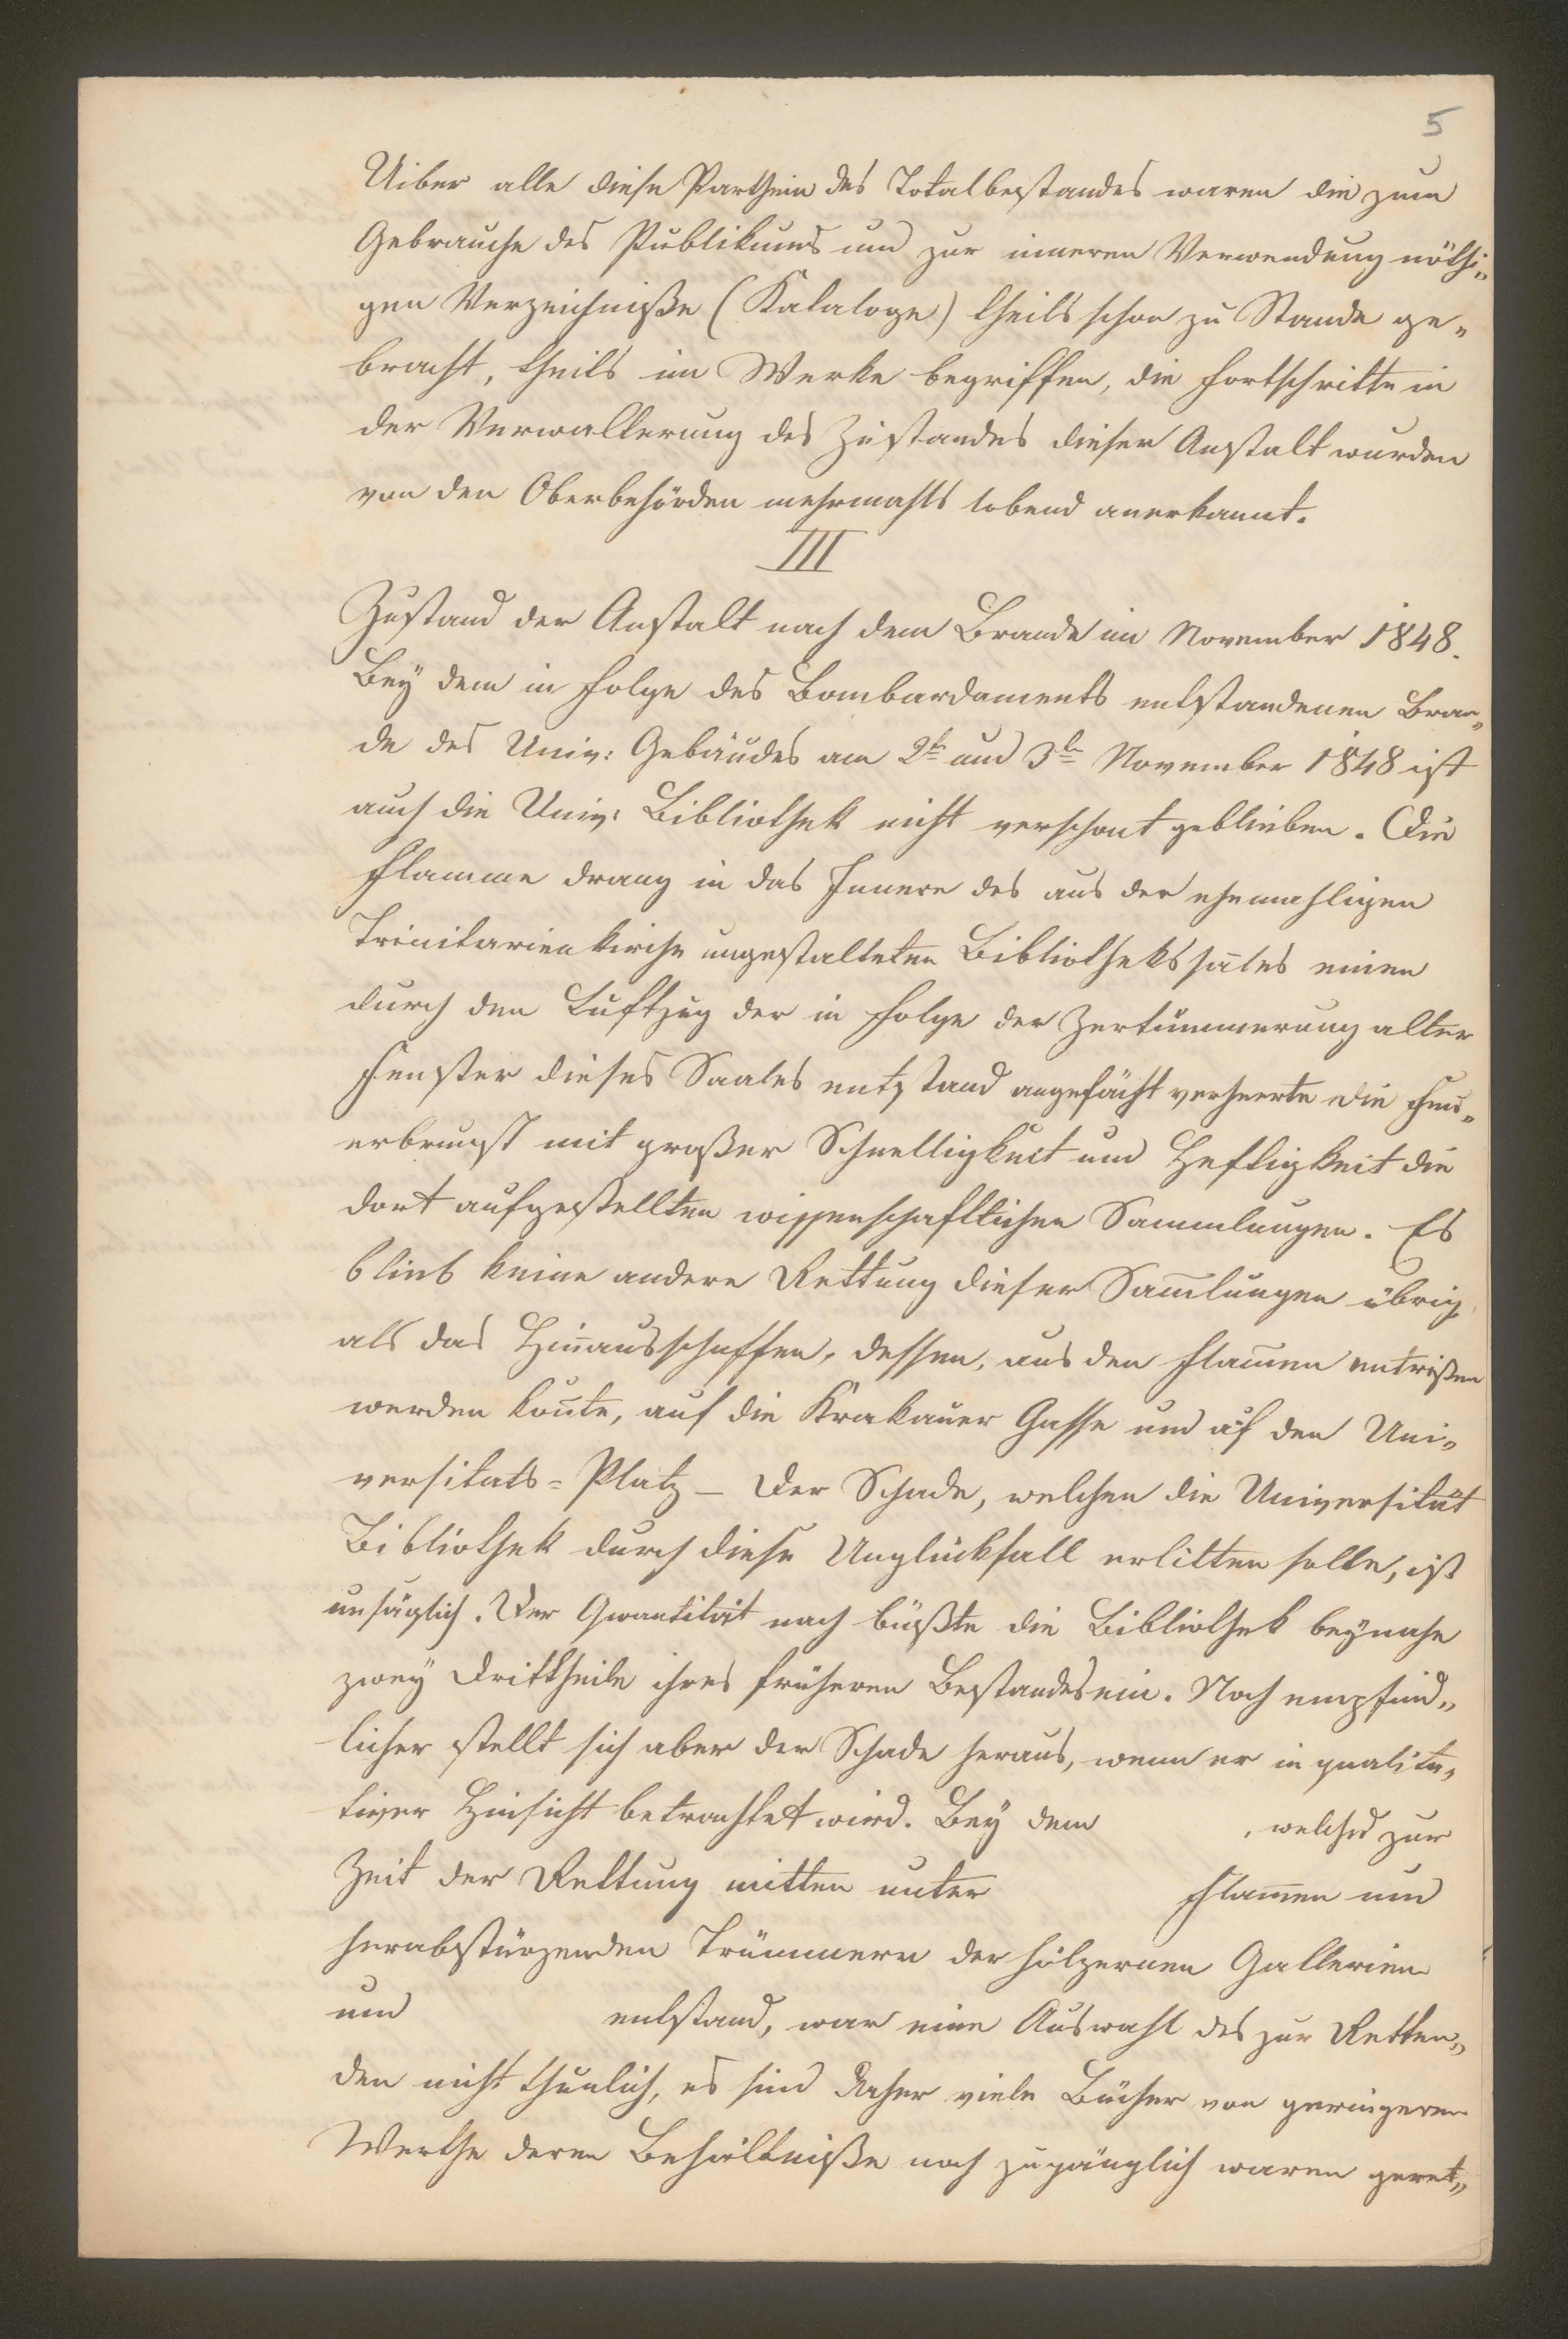 5
Uiber alle diese Partheien des Totalbestandes waren die zum
Gebrauche des Publikums und zur inneren Verwendung nöthi„
gen Verzeichniße (Kataloge) theils schon zu Stande ge„
bracht, theils im Werke begriffen, die Fortschritte in
der Verwallerung des Zustandes dieser Anstalt wurden
von den Oberbehörden mehrmahls lobend anerkannt.
III
Zustand der Anstalt nach dem Brande im November 1848.
Bey dem in Folge des Bombardaments entstandenen Bran„
de des Univ: Gebäudes am 2ten und 3ten November 1848 ist
auch die Univ: Bibliothek nicht verschont geblieben. Die
Flamme drang in das Innere des aus der ehemahligen
Trinitarienkirche umgestalteten Bibliothekssales einen
durch den Luftzug der in Folge der Zertümmerung aller
Fenster dieses Saales entstand angefächt verheerte die Feu„
erbrunst mit großer Schnelligkeit und Heftigkeit die
dort aufgestellten wissenschaftlichen Sammlungen. Es
blieb keine andere Rettung dieser Sam̄lungen übrig
als das Hinausschaffen, dessen, aus den Flam̄en entrißen
werden kon̄te, auf die Krakauer Gasse und auf den Uni„
versitats=Platz – Der Schade, welchen die Universität
Bibliothek durch diese Unglückfall erlitten solle, ist
unsäglich. Der Quantität nach büßte die Bibliothek beynahe
zwey Drittheile ihres früheren Bestandes ein. Noch empfind„
licher stellt sich aber der Schade heraus, wenn er in qualita„
tiver Hinsicht betrachtet wird. Bey dem , welches zur
Zeit der Rettung mitten unter Flam̄en und
herabstürzenden Trümmern der hölzernen Gallerien
und entstand, war eine Auswahl des zur Retten„
den nicht thunlich, es sind daher viele Bücher von geringeren
Werthe deren Behältniße noch zugänglich waren geret„